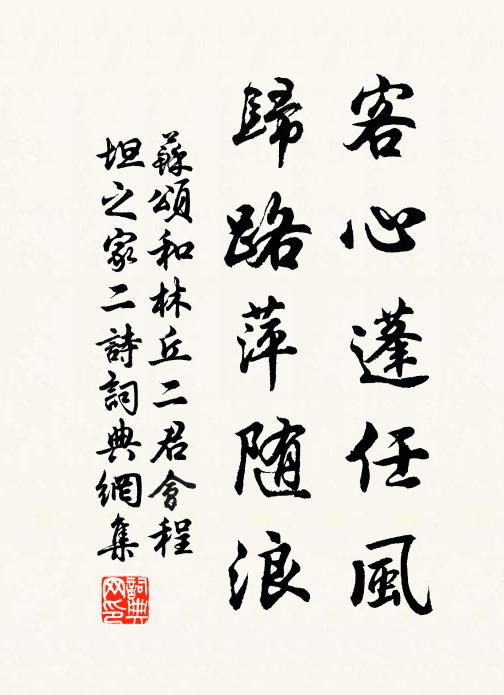 客心蓬任風
歸路萍随浪
蘇頌和林丘二君會程
坦之家二詩詞典網集
詞典
网印